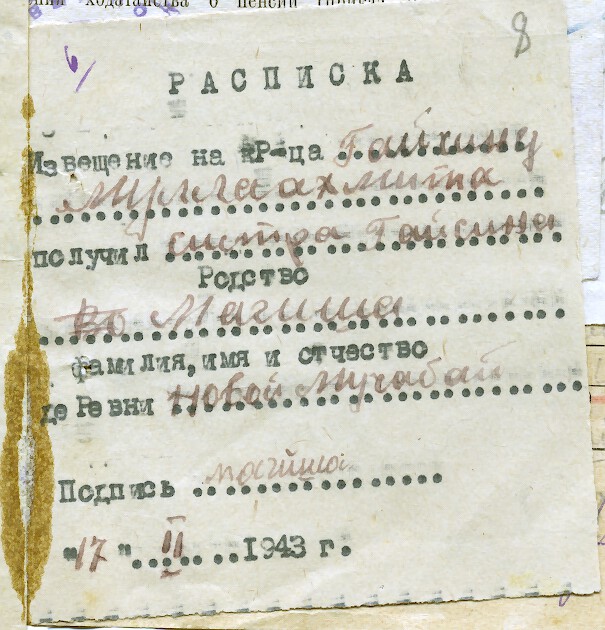 ходатайства о пенсии
8
РАСПИСКА
Извещение на кР-ца Гайсину
Муллаахмита
получил систра Гайсина
Родство
Магиша
фамилия, имя и отчество
деРевни Новой Мучабай
Подпись магиша
"17" II 1943 г.